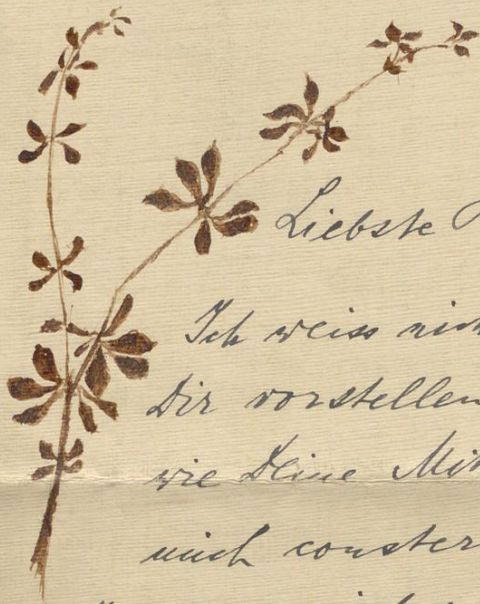 Liebste
Ich weiss nich
Dir vorstellen
wie Deine Mit
mich conster